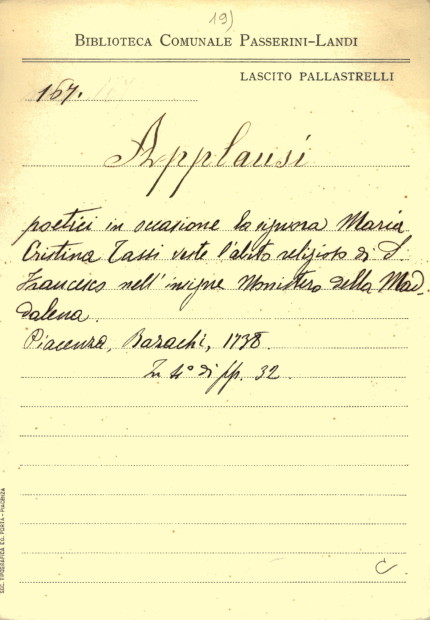 19)
BIBLIOTECA COMUNALE PASSERINI-LANDI
LASCITO PALLASTRELLI
167.
Applausi
poetici in occasione la signora Maria
Cristina Tassi veste l'abito religioso di S.
Francesco nell'insigne Monistero della Mad-
dalena.
Piacenza, Bazachi, 1738.
In 4° di pp. 32.
C
SOC. TIPOGRAFICA ED. PORTA - PIACENZA